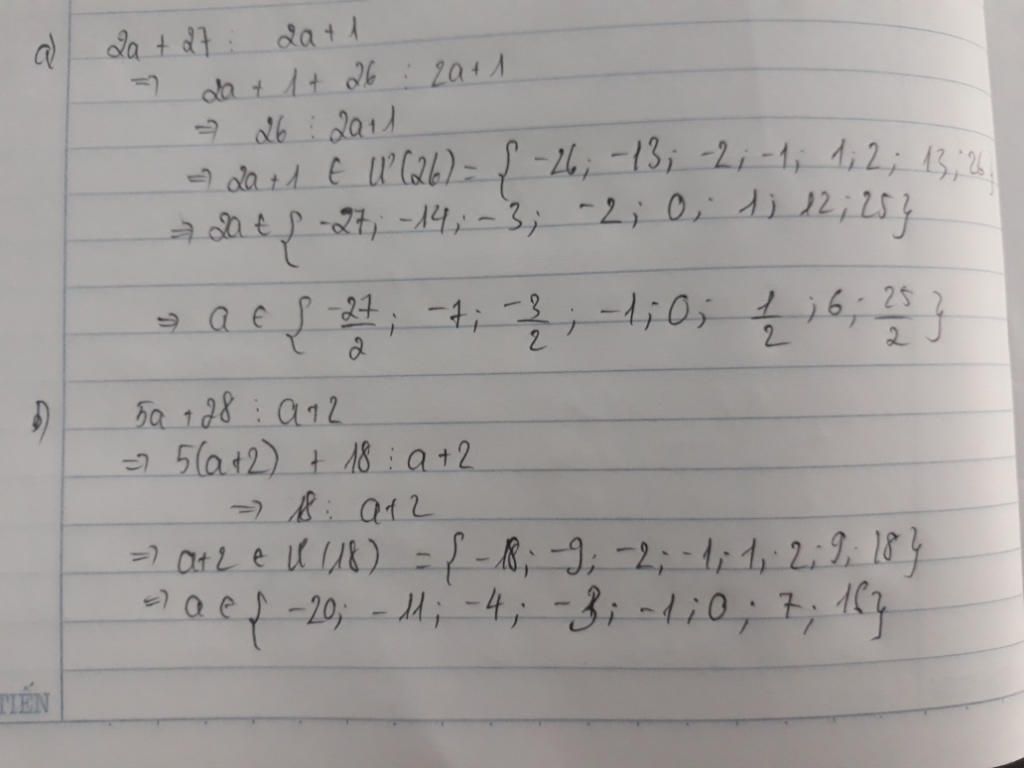 a) 2a + 27 ⋮ 2a + 1
⇒ 2a + 1 + 26 ⋮ 2a + 1
⇒ 26 ⋮ 2a+1
⇒ 2a + 1 ∈ Ư(26) = { -26; -13; -2; -1; 1; 2; 13; 26}
⇒ 2a ∈ { -27; -14; -3; -2; 0; 1; 12; 25}
⇒ a ∈ { -27/2; -7; -3/2; -1; 0; 1/2; 6; 25/2 }
b) 5a + 28 ⋮ a+2
⇒ 5(a+2) + 18 ⋮ a+2
⇒ 18 ⋮ a+2
⇒ a+2 ∈ Ư(18) = { -18; -9; -2; -1; 1; 2; 9; 18}
⇒ a ∈ { -20; -11; -4; -3; -1; 0; 7; 16}
TIẾN